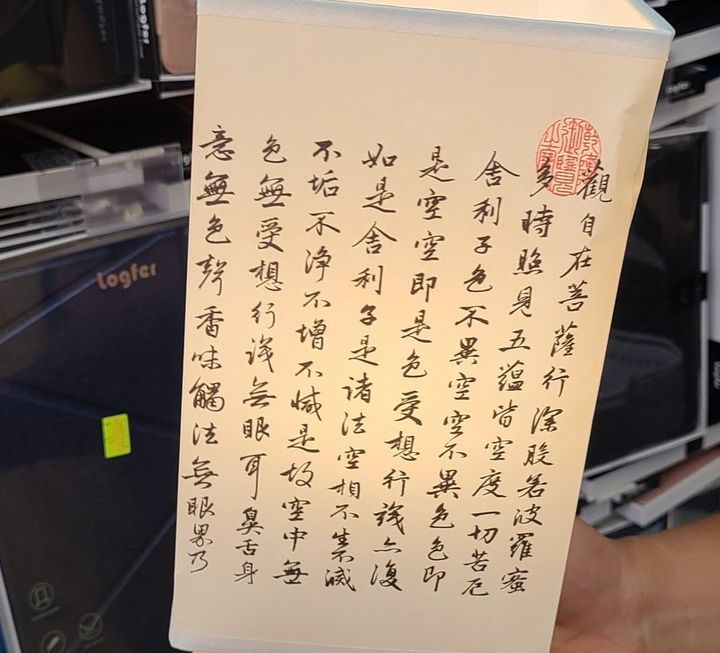 觀自在菩薩行深般若波羅蜜
多時照見五蘊皆空度一切苦厄
舍利子色不異空空不異色色即
是空空即是色受想行識亦復
如是舍利子是諸法空相不生不滅
不垢不淨不增不減是故空中無
色無受想行識無眼耳鼻舌身
意無色聲香味觸法無眼界乃
Logfer